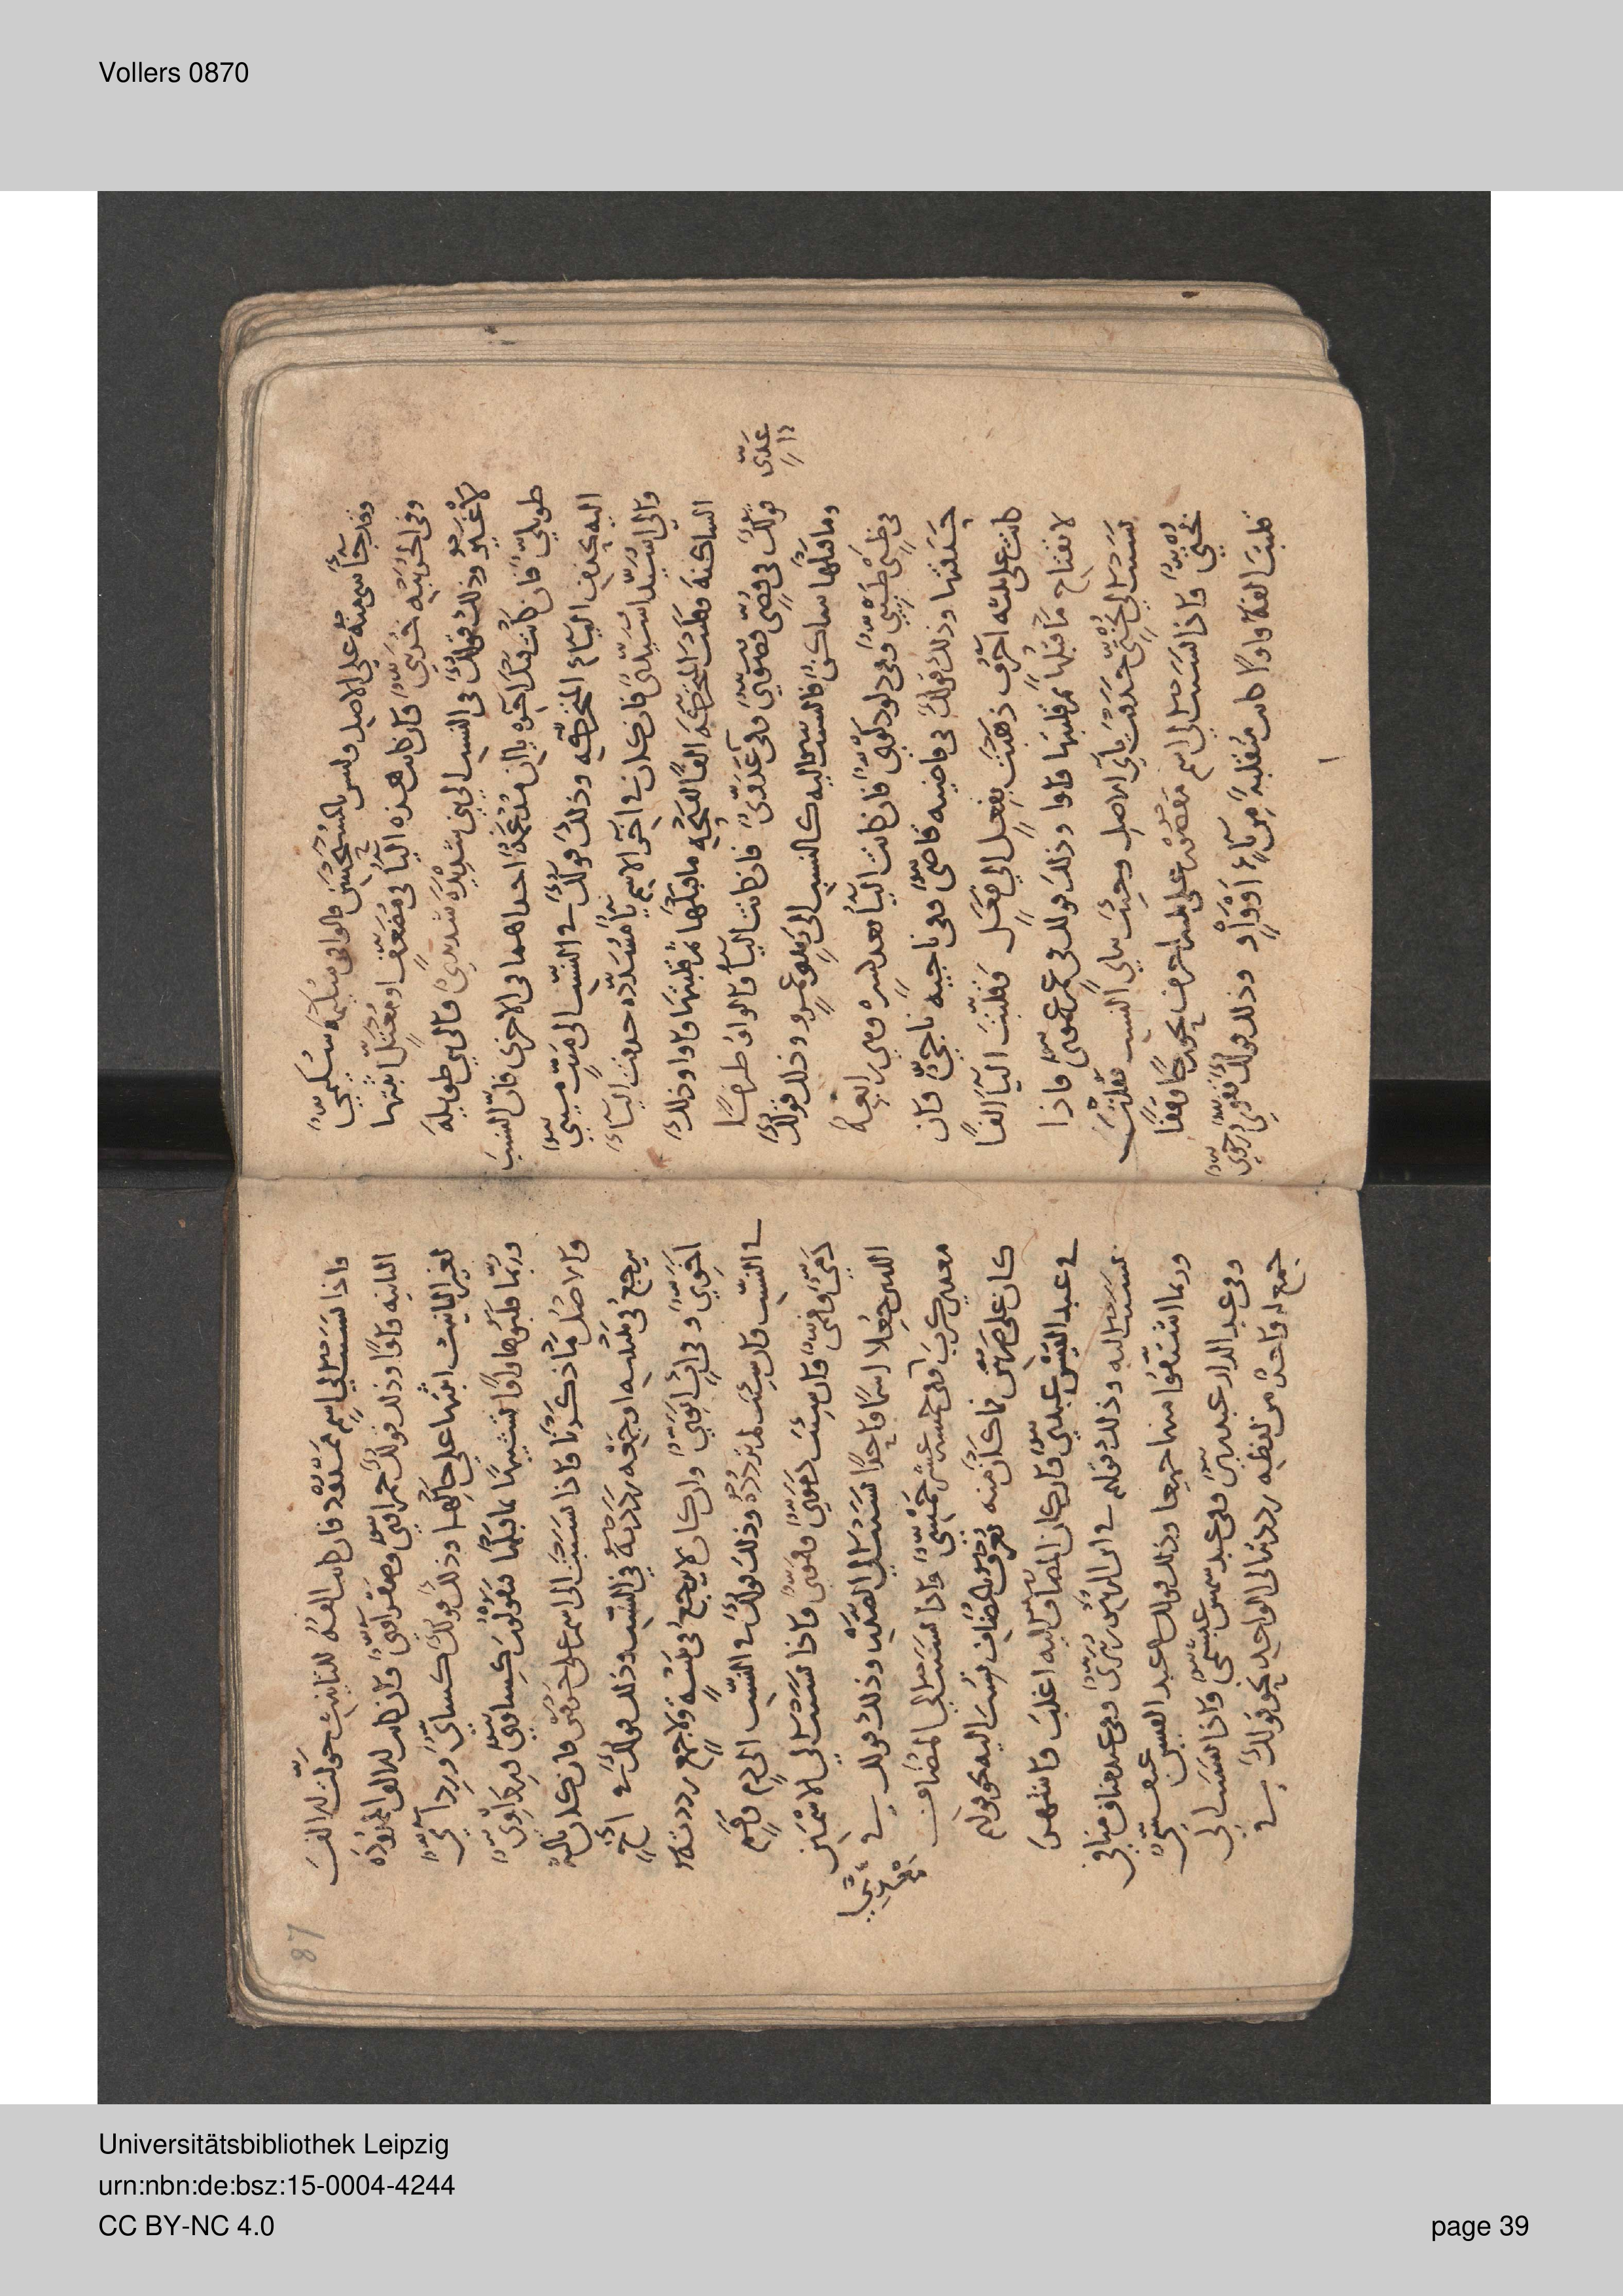 Vollers 0870
وقد جآ شيء منه على الاصل وليس بالمستحسن قالوا في سُليمة سُليميّ
وفي الخريبة خريبيّ فان كانت هذه اليآ في مضعّف او معتلّ اثبتّها
لا غير وذلك قولك في النسب الى بني شديدة شديديّ والى بني طويلة
طويليّ فان كانت قبل اخره ياان مدغمة احداهما في الاخرى فانّ النسب
اليه بحذف اليآء المتحركة وذلك قولك في النسب الى ميّت ميتيّ
والى اسيّد اسيديّ فان كان في اخر الاسم ياء مشدّدة حذفت اليآء
الساكنة وقلبت المتحركة الفا لفتحة ما قبلها ثم قلبتها واوا وذلك
قولك في قصيّ قصويّ وفي عدويّ فان كانت اليآ والواو طرفا
عديّ
وما قبلها ساكن فالنسب اليه كالنسب الى وعمرو وذلك قولك
في ظبي ظبييّ وفي دلو دلويّ فان كانت اليآ بعد كسرة وهي رابعة
حذفتها وذلك قولك في قاضية قاضيّ وفي ناجية ناجيّ وان
كانت على ثلثه احرف ذهبت بفعل الى فعل فقلبت اليآ الفا
لانفتاح ما قبلها ثم قلبتها واوا وذلك قولك في عم عمويّ فاذا
نسبت الى بختيّ حذفت يآي الاصل وجئت بيآي النسب فقلت
بختيّ واذا نسبت الى اسم مقصور على ثلثة احرف نحو رحا وقفا
قلبت الفه واوا كانت منقلبة من يآء او واو وذلك قولك قفويّ ورحويّ
87
واذا نسبت الى اسم ممدود فان كانت الفه للتانيث حولت تلك الالف
الثانية واوا وذلك قولك حمراويّ وصفراويّ فان كانت تلك الالف الممدودة
لغير التانيث اثبتها على حالها وذلك قولك كسائيّ وردائيّ
وربّما قلبوها واوا تشبيها بما قبلها فيقولون كساويّ ورداويّ
والاصل ما ذكرنا واذا نسبت الى اسم على حرفين فان كان ثالثه
يرجع في تثنيه او جمع رددته في النسب وذلك قولك في اخ
اخويّ وفي اب ابويّ وان كان لا يرجع في تثنية ولا جمع رددته
في النسب وان شئت لم تردده وذلك قولك في النسب الى دم وفم
دميّ وفميّ وان شئت دمويّ وفمويّ واذا نسبت الى الاسمين
اللذين جعلا اسما واحدا نسبت الى الصدر وذلك قولك في
معدي كرب وفي خمسة عشر خمسيّ واذا نسبت الى المضاف
كان على ضربين فما كان منه يعرف بالمضاف نسب اليه نحو قولهم
في عبد القيس عبديّ وان كان المضاف اليه اغلب واشهر
نسبت اليه وذلك قولهم في ابن الزبير زبيريّ وفي عبد مناف منافي
وربما اشتقوا منهما جميعا وذلك قولك في عبد القيس عبقسيّ
وفي عبد الدار عبدريّ وفي عبد شمس عبشميّ واذا نسبت الى
جمع له واحد من لفظه رددته الى الواحد نحو قولك في
Universitätsbibliothek Leipzig
urn:nbn:de:bsz:15-0004-4244
CC BY-NC 4.0
page 39